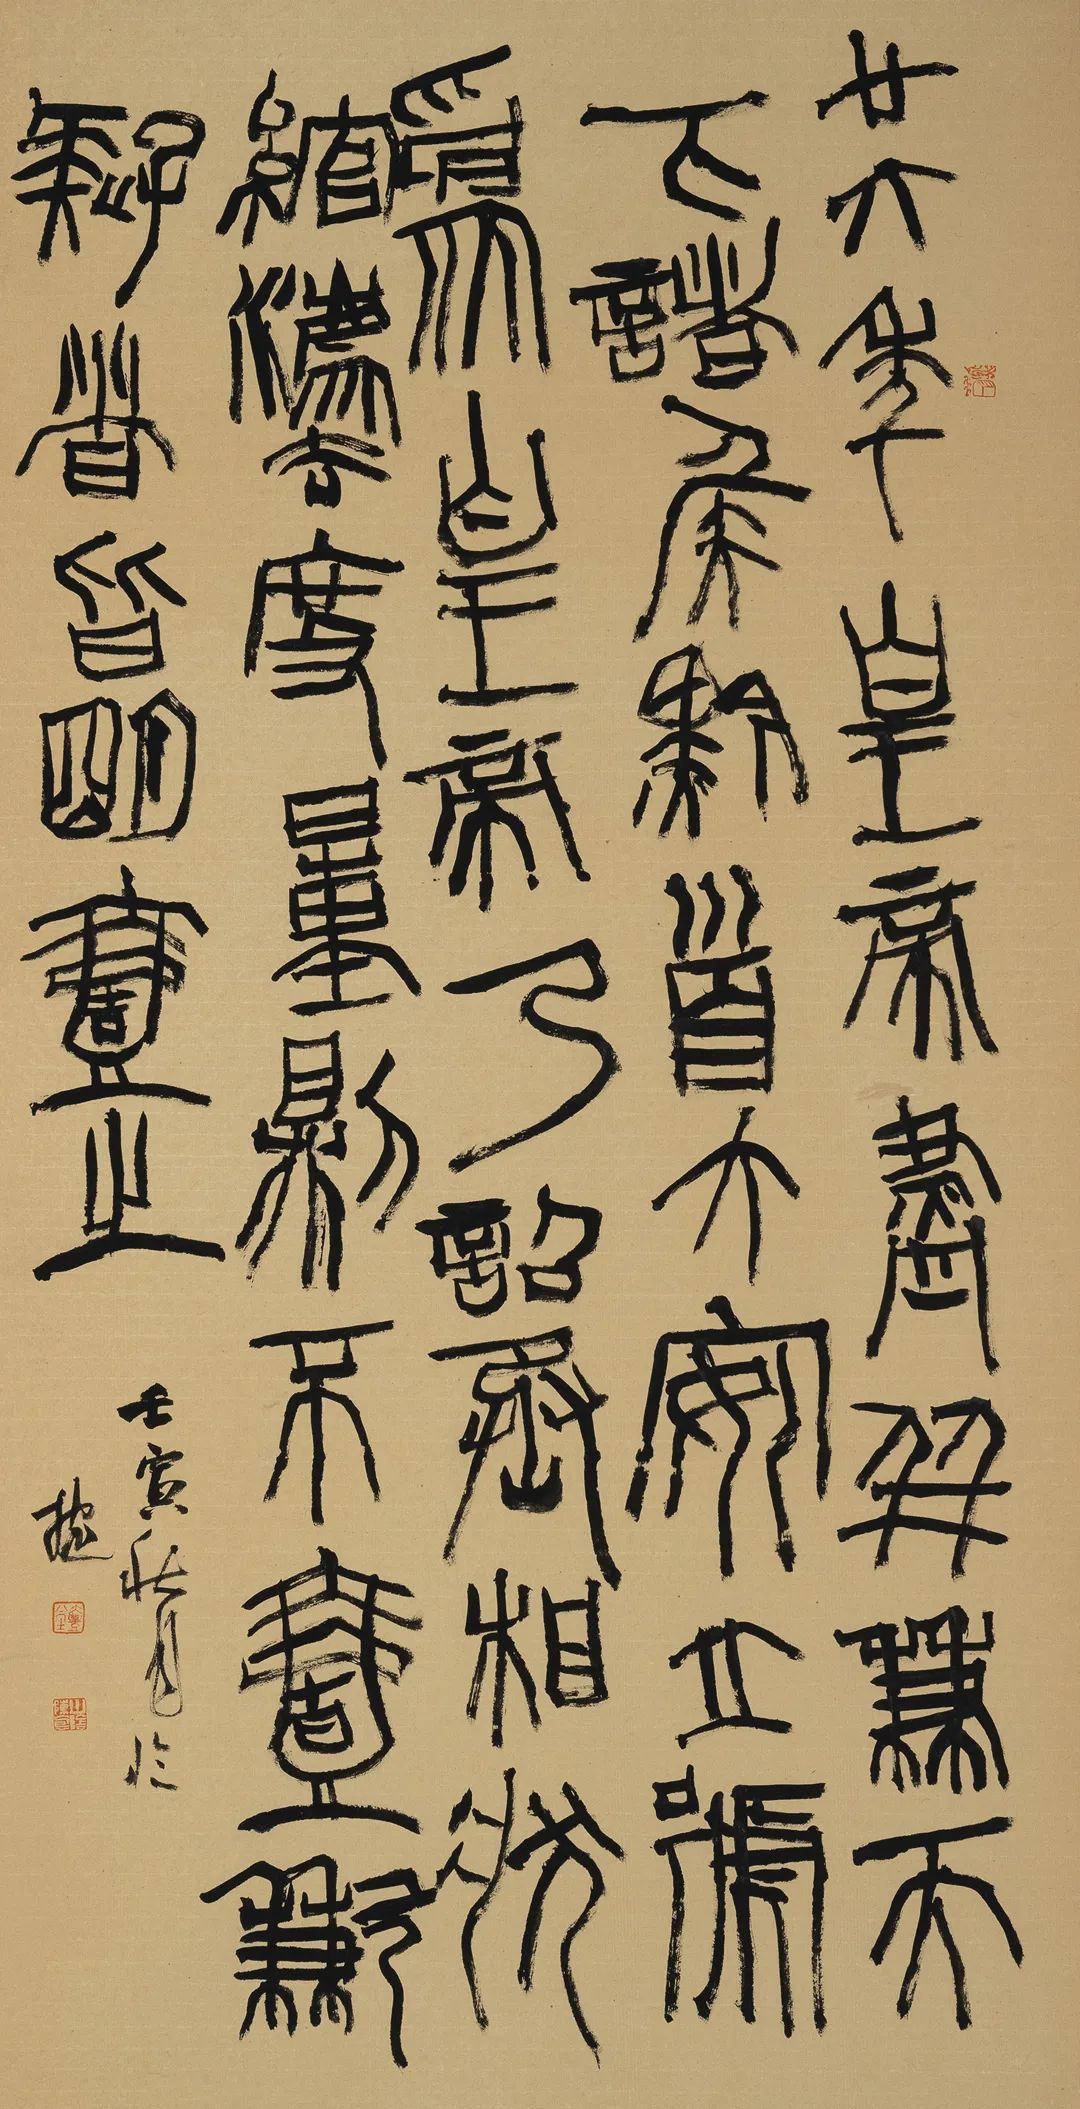 廿六年皇帝盡并兼天
下諸侯黔首大安立號
爲皇帝乃詔丞相狀
綰灋度量則不壹歉
疑者皆明壹之
壬寅秋月